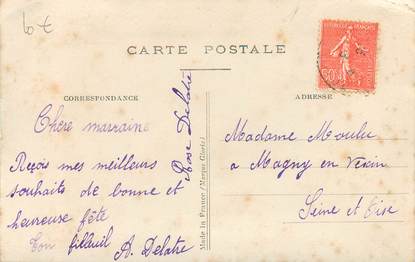 6 7
CARTE POSTALE
CORRESPONDANCE
ADRESSE
Chère marraine
Reçois mes meilleurs
souhaits de bonne et
heureuse fête
Ton filleul A. Delatre
Rose Delatre
Made in France (Marque Gloria)
Madame Moulu
a Magny en Vexin
Seine et Oise